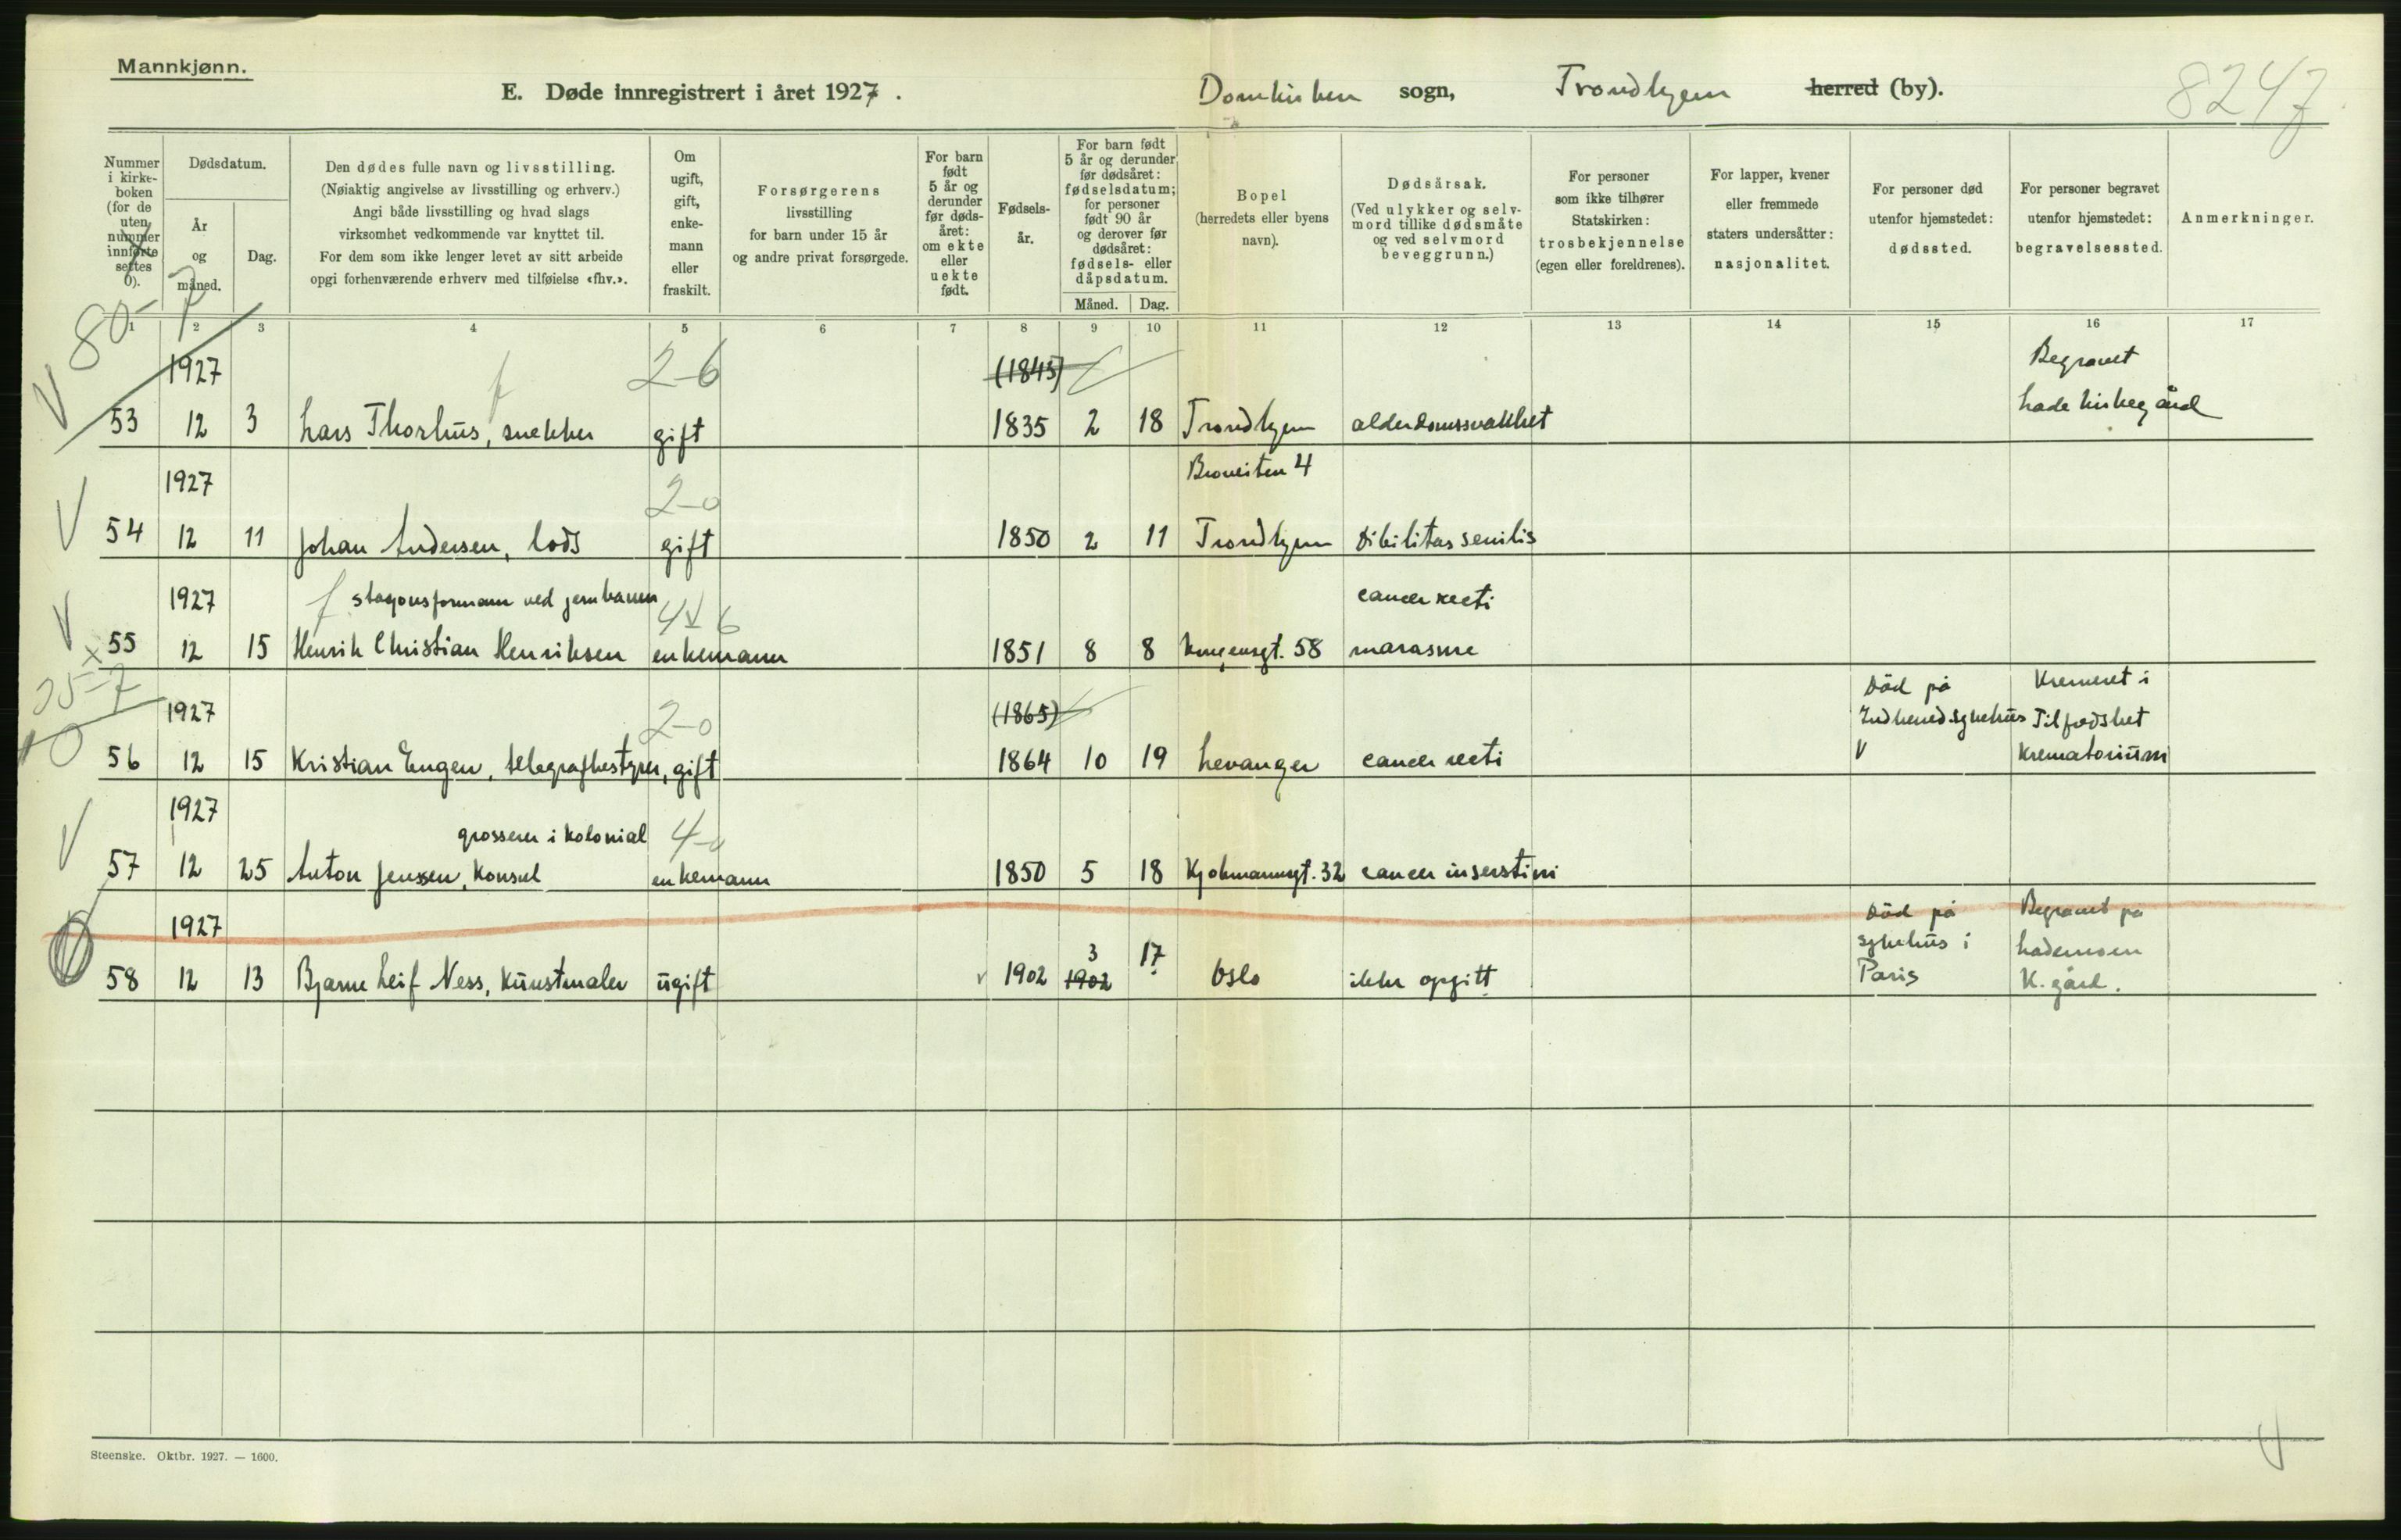 Mannkjønn.
E. Døde innregistrert i året 1927.
Domkirken sogn, Trondhjem herred (by).
8247
Nummer i kirkeboken (for de uten nummer innførte settes 0).
Dødsdatum.
År og måned.
Dag.
Den dødes fulle navn og livsstilling.
(Nøiaktig angivelse av livsstilling og erhverv.)
Angi både livsstilling og hvad slags
virksomhet vedkommende var knyttet til.
For dem som ikke lenger levet av sitt arbeide
opgi forhenværende erhverv med tilføielse «fhv.».
Om ugift, gift, enkemann eller fraskilt.
Forsørgerens
livsstilling
for barn under 15 år
og andre privat forsørgede.
For barn født 5 år og derunder før dødsåret: om ekte eller uekte født.
Fødselsår.
For barn født 5 år og derunder før dødsåret: fødselsdatum; for personer født 90 år og derover før dødsåret: fødsels- eller dåpsdatum.
Måned. Dag.
Bopel
(herredets eller byens
navn).
Dødsårsak.
(Ved ulykker og selvmord tillike dødsmåte og ved selvmord beveggrunn.)
For personer
som ikke tilhører
Statskirken:
trosbekjennelse
(egen eller foreldrenes).
For lapper, kvener
eller fremmede
staters undersåtter:
nasjonalitet.
For personer død
utenfor hjemstedet:
dødssted.
For personer begravet
utenfor hjemstedet:
begravelsessted.
Anmerkninger.
1 2 3 4 5 6 7 8 9 10 11 12 13 14 15 16 17
80-7
1927 2-6 (1845) Begravet
53 12 3 Lars Thorhus, snekker gift 1835 2 18 Trondhjem alderdomssvakhet Lade kirkegård
1927 2-0 Broveiten 4
54 12 11 Johan Andersen, lods gift 1850 2 11 Trondhjem Dibilitas senilis
1927 f stasjonsformann ved jernbanen 4 6 cancer recti
55 12 15 Henrik Christian Henriksen enkemann 1851 8 8 Kongensgt. 58 marasme
1927 2-0 (1865) Död på Indherred sykehus Kremeret i Tilfredshet
56 12 15 Kristian Engen, telegrafbestyrer, gift 1864 10 19 Levanger cancer recti Krematorium
1927 grosserer i kolonial 4-0
57 12 25 Anton Jenssen, Konsul enkemann 1850 5 18 Kjøbmannsgt. 32 cancer inserstini
1927 3 17 Död på sykehus i Begravet på Lademoen
58 12 13 Bjarne Leif Ness, Kunstmaler ugift 1902 1902 Oslo ikke opgitt Paris K. gård.
Steenske. Oktbr. 1927. — 1600.